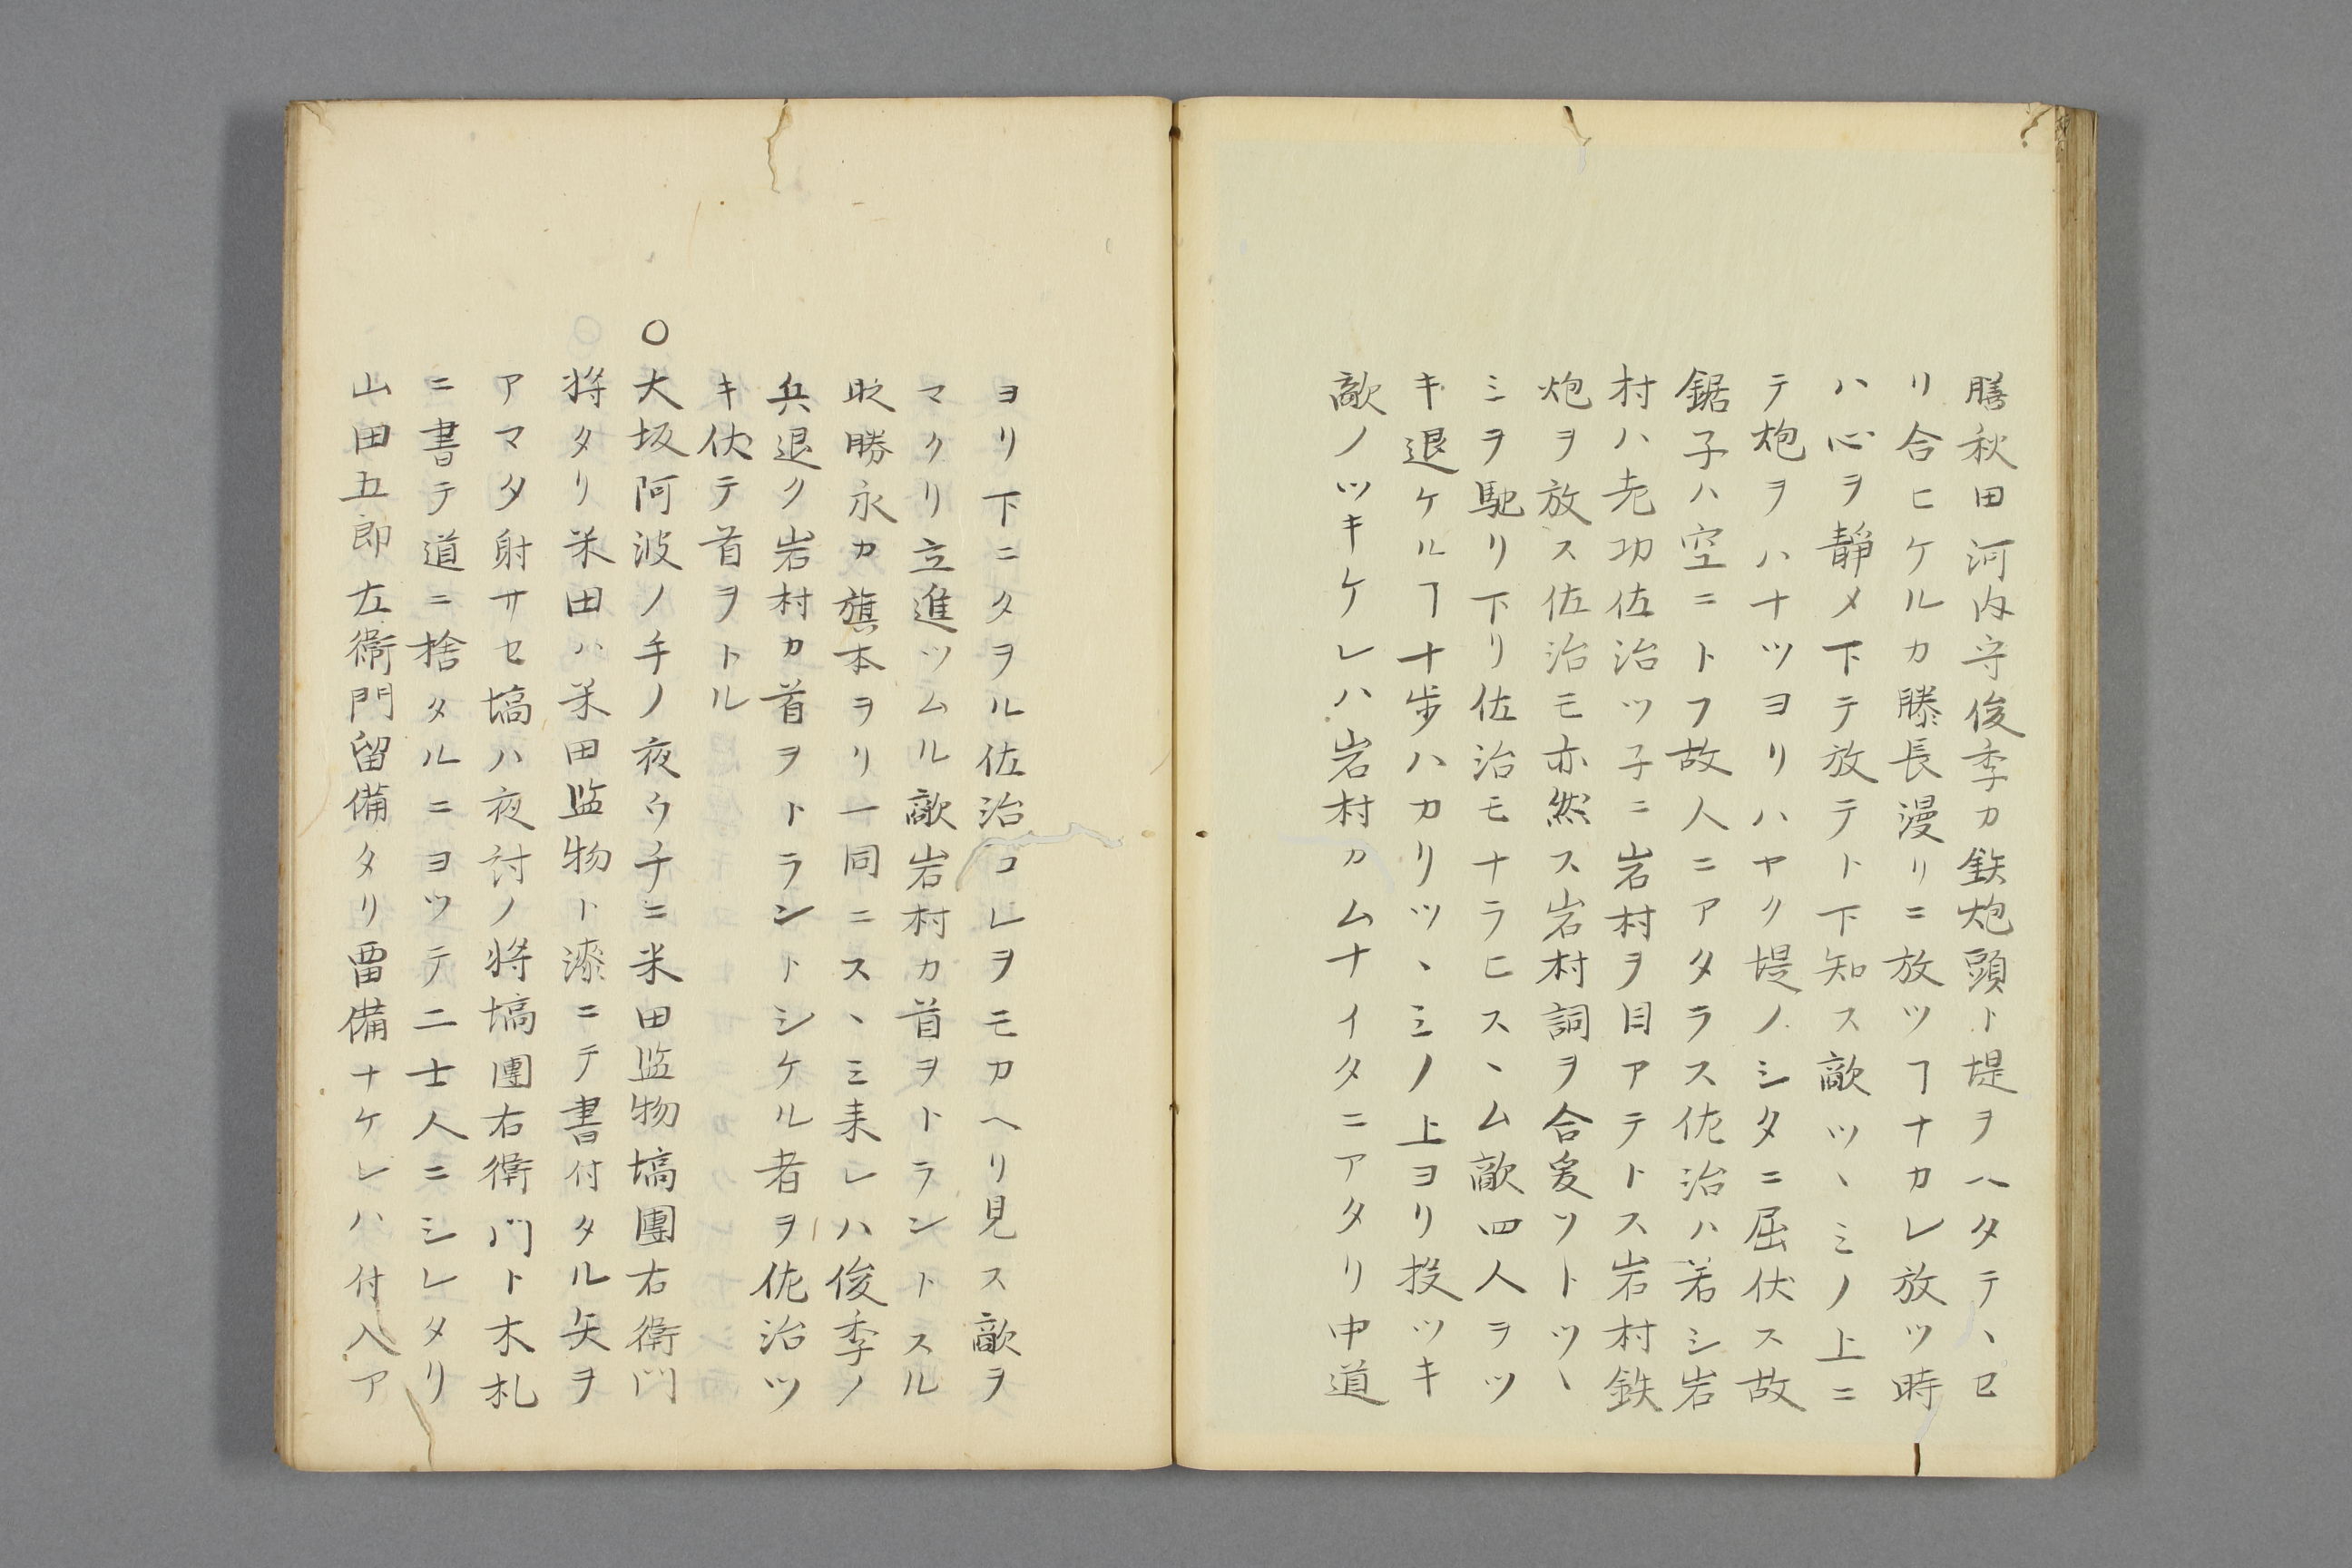 膳秋田河内守俊季カ鉄炮頭ト堤ヲヘタテヽセ
リ合ヒケルカ勝長漫リニ放ツヿナカレ放ツ時
ハ心ヲ静メ下テ放テト下知ス敵ツヽミノ上ニ
テ炮ヲハナツヨリハヤク堤ノシタニ屈伏ス故
鋸子ハ空ニトフ故人ニアタラス佐治ハ若シ岩
村ハ老功佐治ツ子ニ岩村ヲ目アテトス岩村鉄
炮ヲ放ス佐治モ亦然ス岩村詞ヲ合爰ソトツヽ
ミヲ馳リ下リ佐治モナラヒスヽム敵四人ラツ
キ退ケルヿ十歩ハカリツヽミノ上ヨリ投ツキ
敵ノツキケレハ岩村カムナイタニアタリ中道
ヨリ下ニタヲル佐治コレヲモカヘリ見ス敵ヲ
マクリ立進ツムル敵岩村カ首ヲトラントスル
時勝永カ旗本ヲリ一同ニスヽミ来レハ俊季ノ
兵退ク岩村カ首ヲトラントシケル者ヲ佐治ツ
キ伏テ首ヲトル
○大坂阿波ノ手ノ夜ウチニ米田監物塙團右衛門
将タリ米田ハ米田監物ト漆ニテ書付タル矢ヲ
アマタ射サセ塙ハ夜討ノ将塙團右衛門ト木札
ニ書テ道ニ捨タルニヨツテ二士人ニシレタリ
山田五郎左衛門留備タリ畱備ナケレハ付入ア